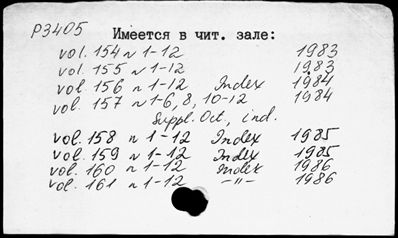 P3405
Имеется в чит. зале:
vol. 154 n 1-12 1983
vol. 155 n 1-12 1983
vol. 156 n 1-12 Index 1984
vol. 157 n 1-6, 8, 10-12 1984
Suppl. Oct., ind.
vol. 158 n 1-12 Index 1985
vol. 159 n 1-12 Index 1985
vol. 160 n 1-12 Index 1986
vol. 161 n 1-12 -"- 1986